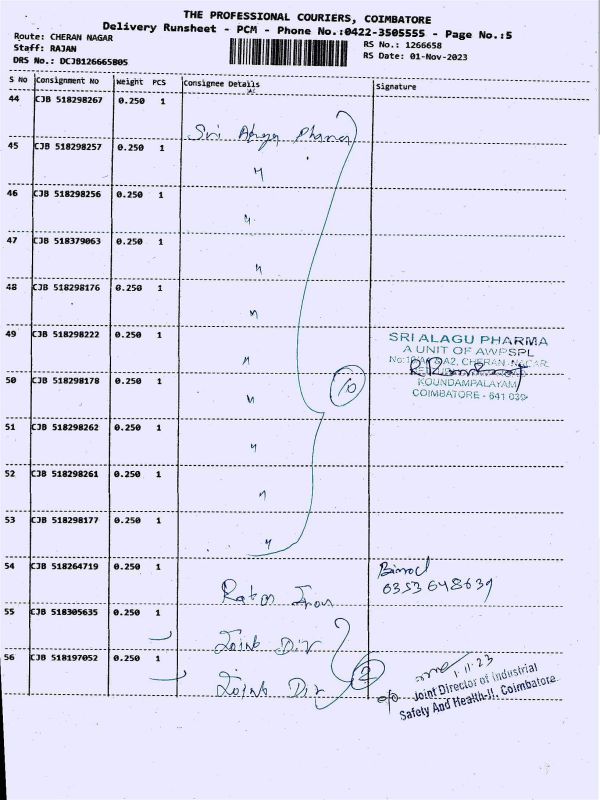 THE PROFESSIONAL COURIERS, COIMBATORE
Delivery Runsheet - PCM - Phone No.:0422-3505555 - Page No.:5
Route: CHERAN NAGAR
RS No.: 1266658
Staff: RAJAN
RS Date: 01-Nov-2023
DRS No.: DCJB126665B05
S No Consignment No Weight PCS Consignee Details Signature
44 CJB 518298267 0.250 1 Sri Alagu Pharma
45 CJB 518298257 0.250 1 "
46 CJB 518298256 0.250 1 "
47 CJB 518379063 0.250 1 "
48 CJB 518298176 0.250 1 "
49 CJB 518298222 0.250 1 "
SRI ALAGU PHARMA
A UNIT OF AWPSPL
CHERAN NAGAR
50 CJB 518298178 0.250 1 " 10
KOUNDAMPALAYAM
COIMBATORE - 641 030
51 CJB 518298262 0.250 1 "
52 CJB 518298261 0.250 1 "
53 CJB 518298177 0.250 1 "
54 CJB 518264719 0.250 1 Iron
6353648639
55 CJB 518305635 0.250 1 Joint Dir
56 CJB 518197052 0.250 1 Joint Dir 2
1.11.23
o/o Joint Director of Industrial
Safety And Health-II, Coimbatore